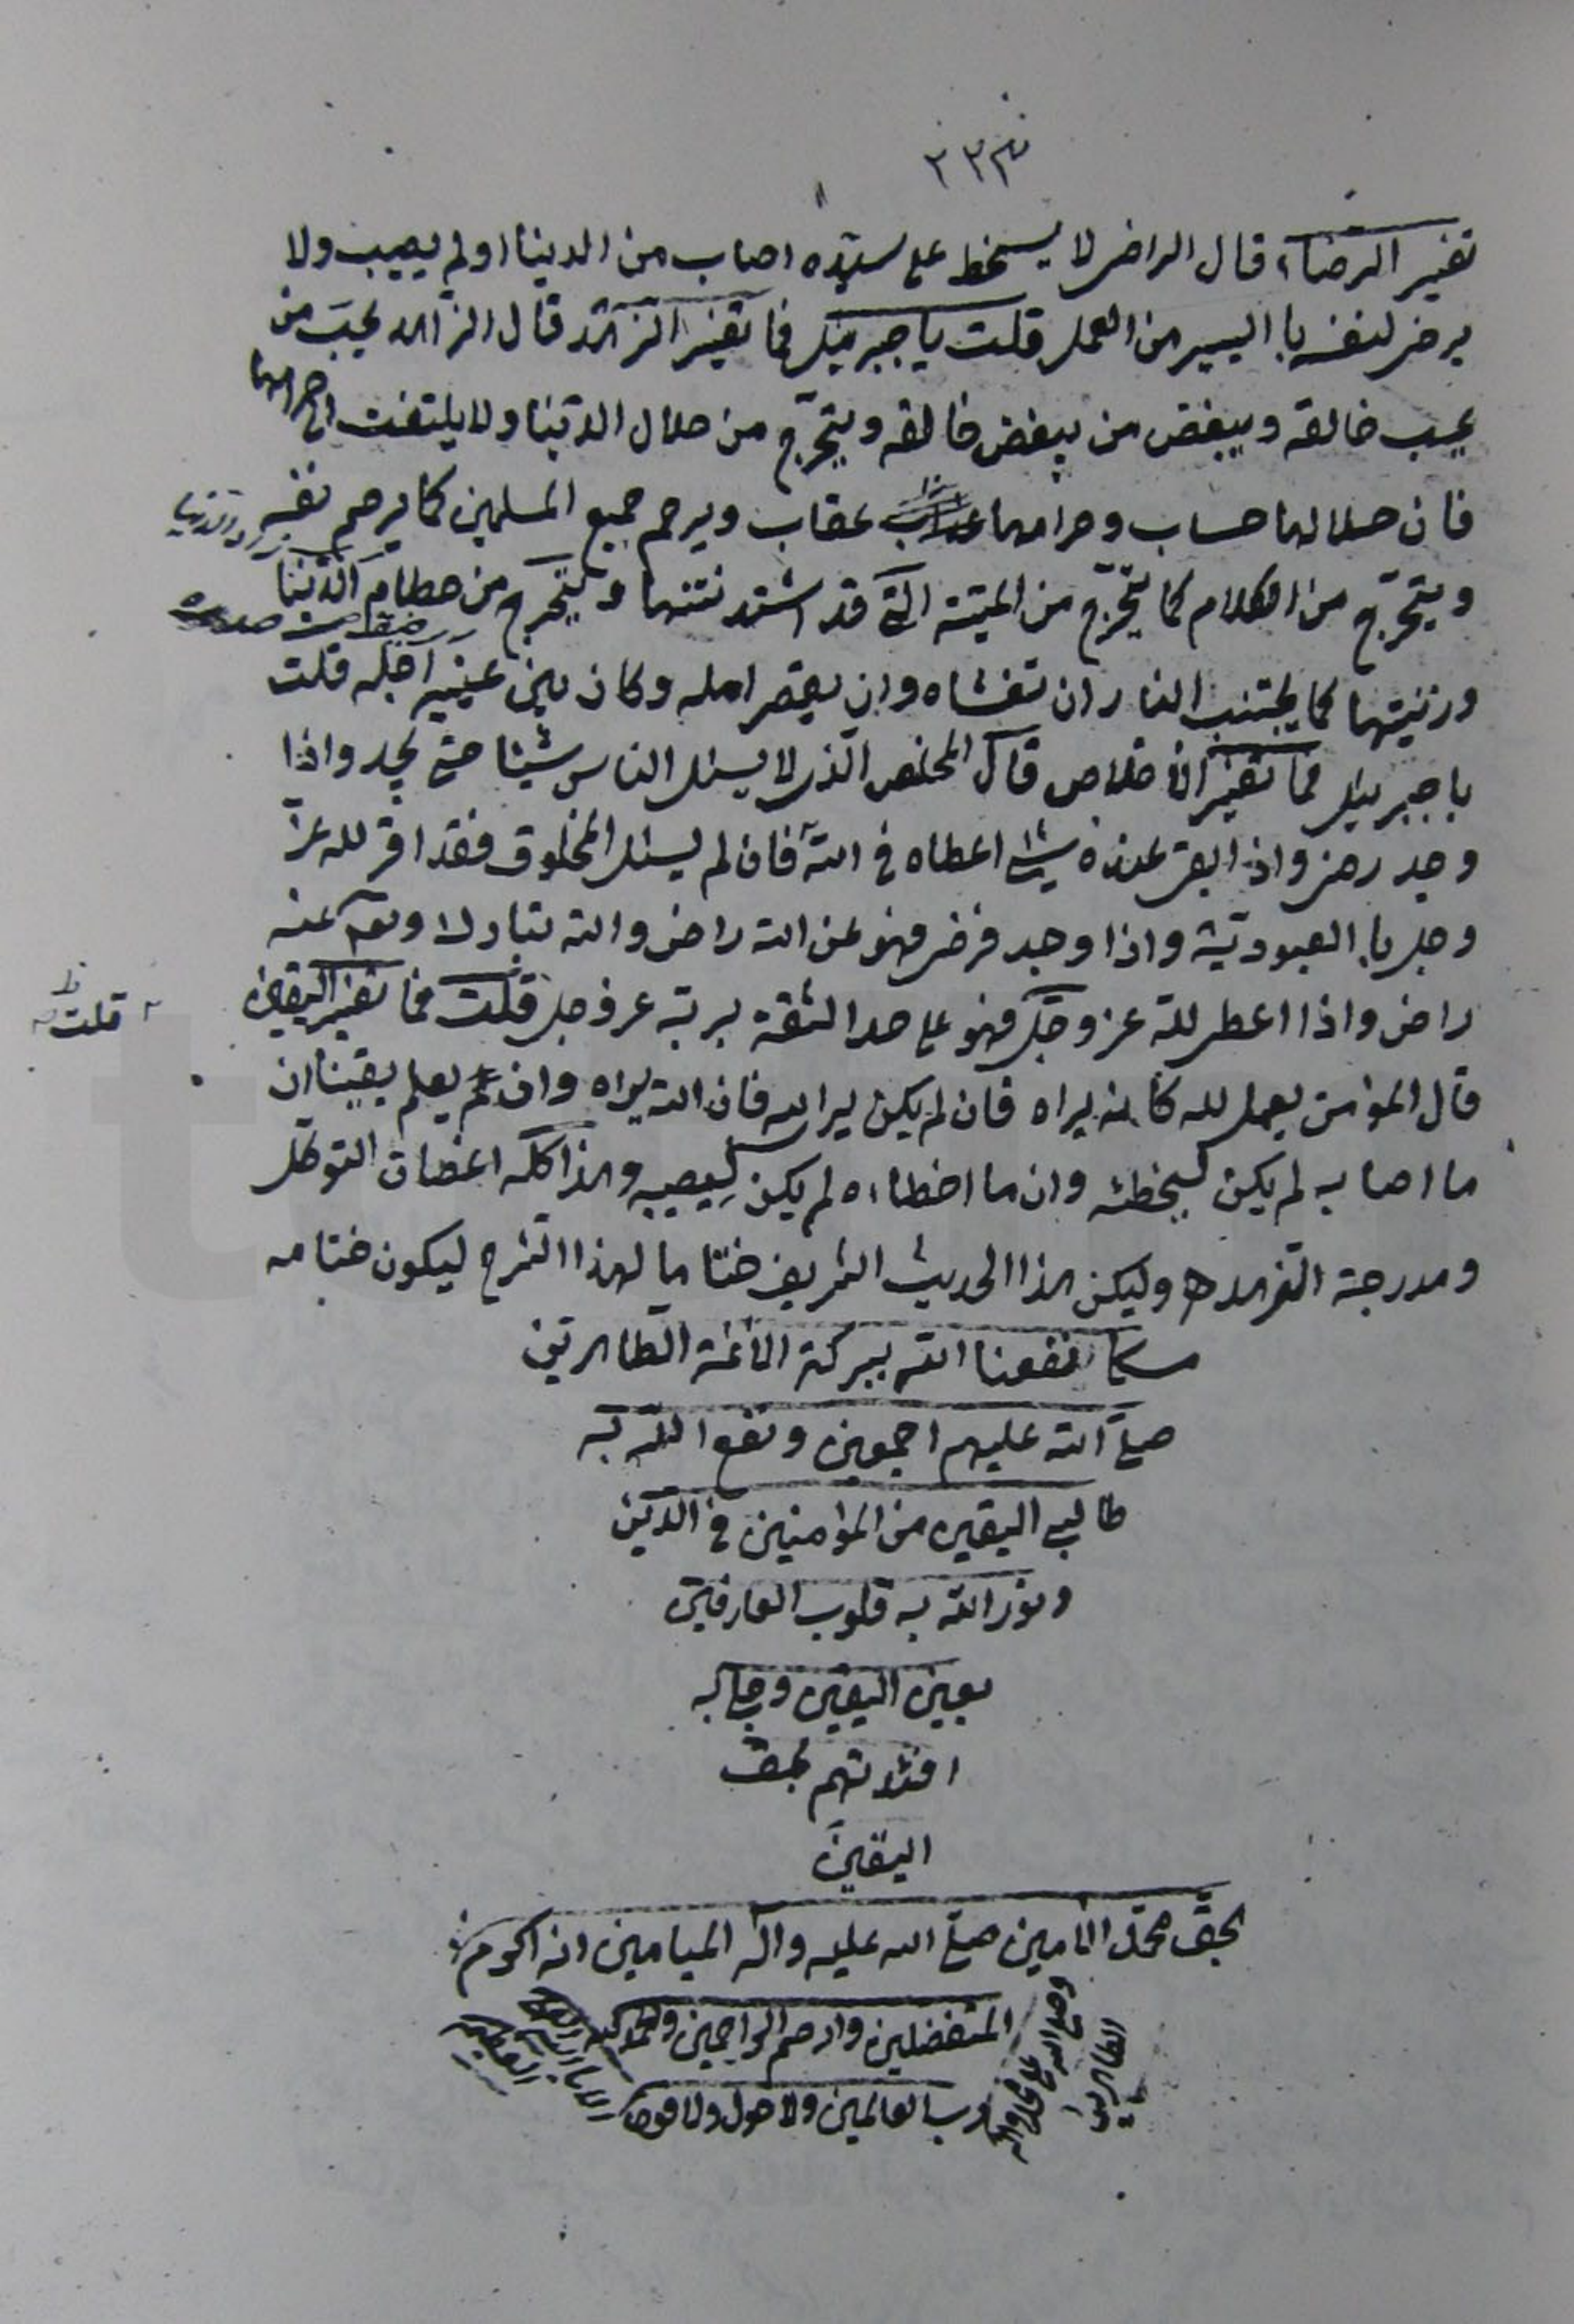 ٣٣٣
تفسير الرضاء قال الراضى لا يسخط على سيّده اصاب من الدنيا او لم يصيب ولا
يرضى لنفسه باليسير من العمل قلت يا جبرئيل فما تفسير الزاهد قال الزاهد يحبّ من
يحب خالقه ويبغض من يبغض خالقه ويتحرّج من حلال الدّنيا ولا يلتفت الى حرامها
فان حلالها حساب وحرامها عقاب ويرحم جميع المسلمين كما يرحم نفسه
ويتحرّج من الكلام كما يتحرّج من الميتة الّتى قد اشتد نتنها ويتحرج من حطام الدّنيا
وزنيتها كما يجتنب النار ان تغشاه وان يقصر امله وكان بين عينيه اجله قلت
يا جبرئيل فما تفسير الاخلاص قال المخلص الّذى لا يسئل الناس شيئا حتى يجد واذا
وجد رضى واذا بقى عنده شيئ اعطاه فى الله فان لم يسئل المخلوق فقد اقر لله عزّ
وجل باالعبوديّة واذا وجد فرضى فهو عن الله راض والله تبارك وتعالى عنه
راض واذا اعطى لله عز وجلّ فهو على حد الثقة بربّه عز وجل قلت فما تفسير اليقين
قلت
قال المؤمن يعمل لله كانه يراه فان لم يكن يرالله فان الله يراه وان يعلم يقينا ان
ما اصابه لم يكن ليخطئه وان ما اخطاه لم يكن ليصيبه وهذا كله اغصان التوكل
ومدرجة الزهد وليكن هذا الحديث الشريف ختاما لهذا الشرح ليكون ختامه
مسكا نفعنا الله ببركة الائمة الطاهرين
صلى الله عليهم اجمعين ونفع الله به
طالب اليقين من المؤمنين فى الدّين
ونوّر الله به قلوب العارفين
بعين اليقين وجلا به
افئدتهم بحق
اليقين
بحق محمّد الامين صلى الله عليه واله الميامين انه اكرم
المتفضلين وارحم الراحمين والحمد لله
رب العالمين ولا حول ولا قوة
الا بالله العلى العظيم
وصلى الله على محمد واله
الطاهرين